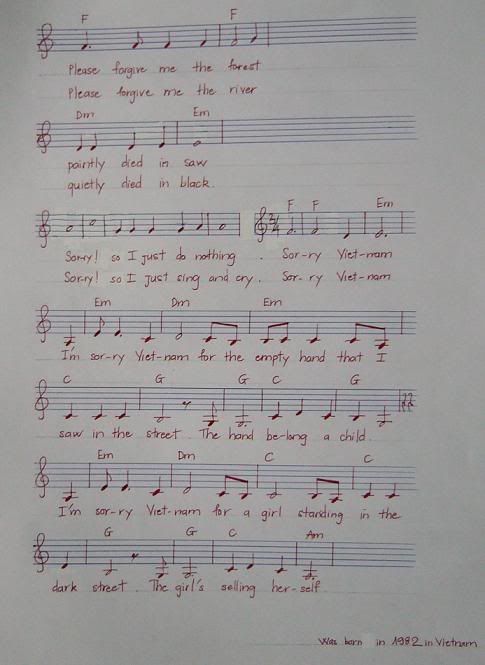 F F
Please forgive me the forest
Please forgive me the river
Dm Em
paintly died in saw
quietly died in black.
F F Em
2/4
Sorry! so I just do nothing . Sor-ry Viet-nam
Sorry! so I just sing and cry. Sor-ry Viet-nam
Em Dm Em
I'm sor-ry Viet-nam for the empty hand that I
C G G C G
saw in the street. The hand be-long a child.
Em Dm C C
I'm sor-ry Viet-nam for a girl standing in the
G G C Am
dark street. The girl's selling her-self.
Was born in 1982 in Vietnam